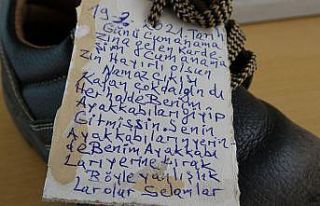 19-2-2021.Tarih
Günü Cumanama
Zina gelen Karde
Şim Cumanama
Zin Hayırlı Olsun
Namaz çıkışı
Kafan çokdalgındı
Herhalde Benim
Ayakkabılarıgiyip
Gitmişsin. Senin
Ayakkabılarınyerin
de Benim Ayakkabı
Larıyerine bırak
Böyle yanlışlık
Lar olur Selamlar